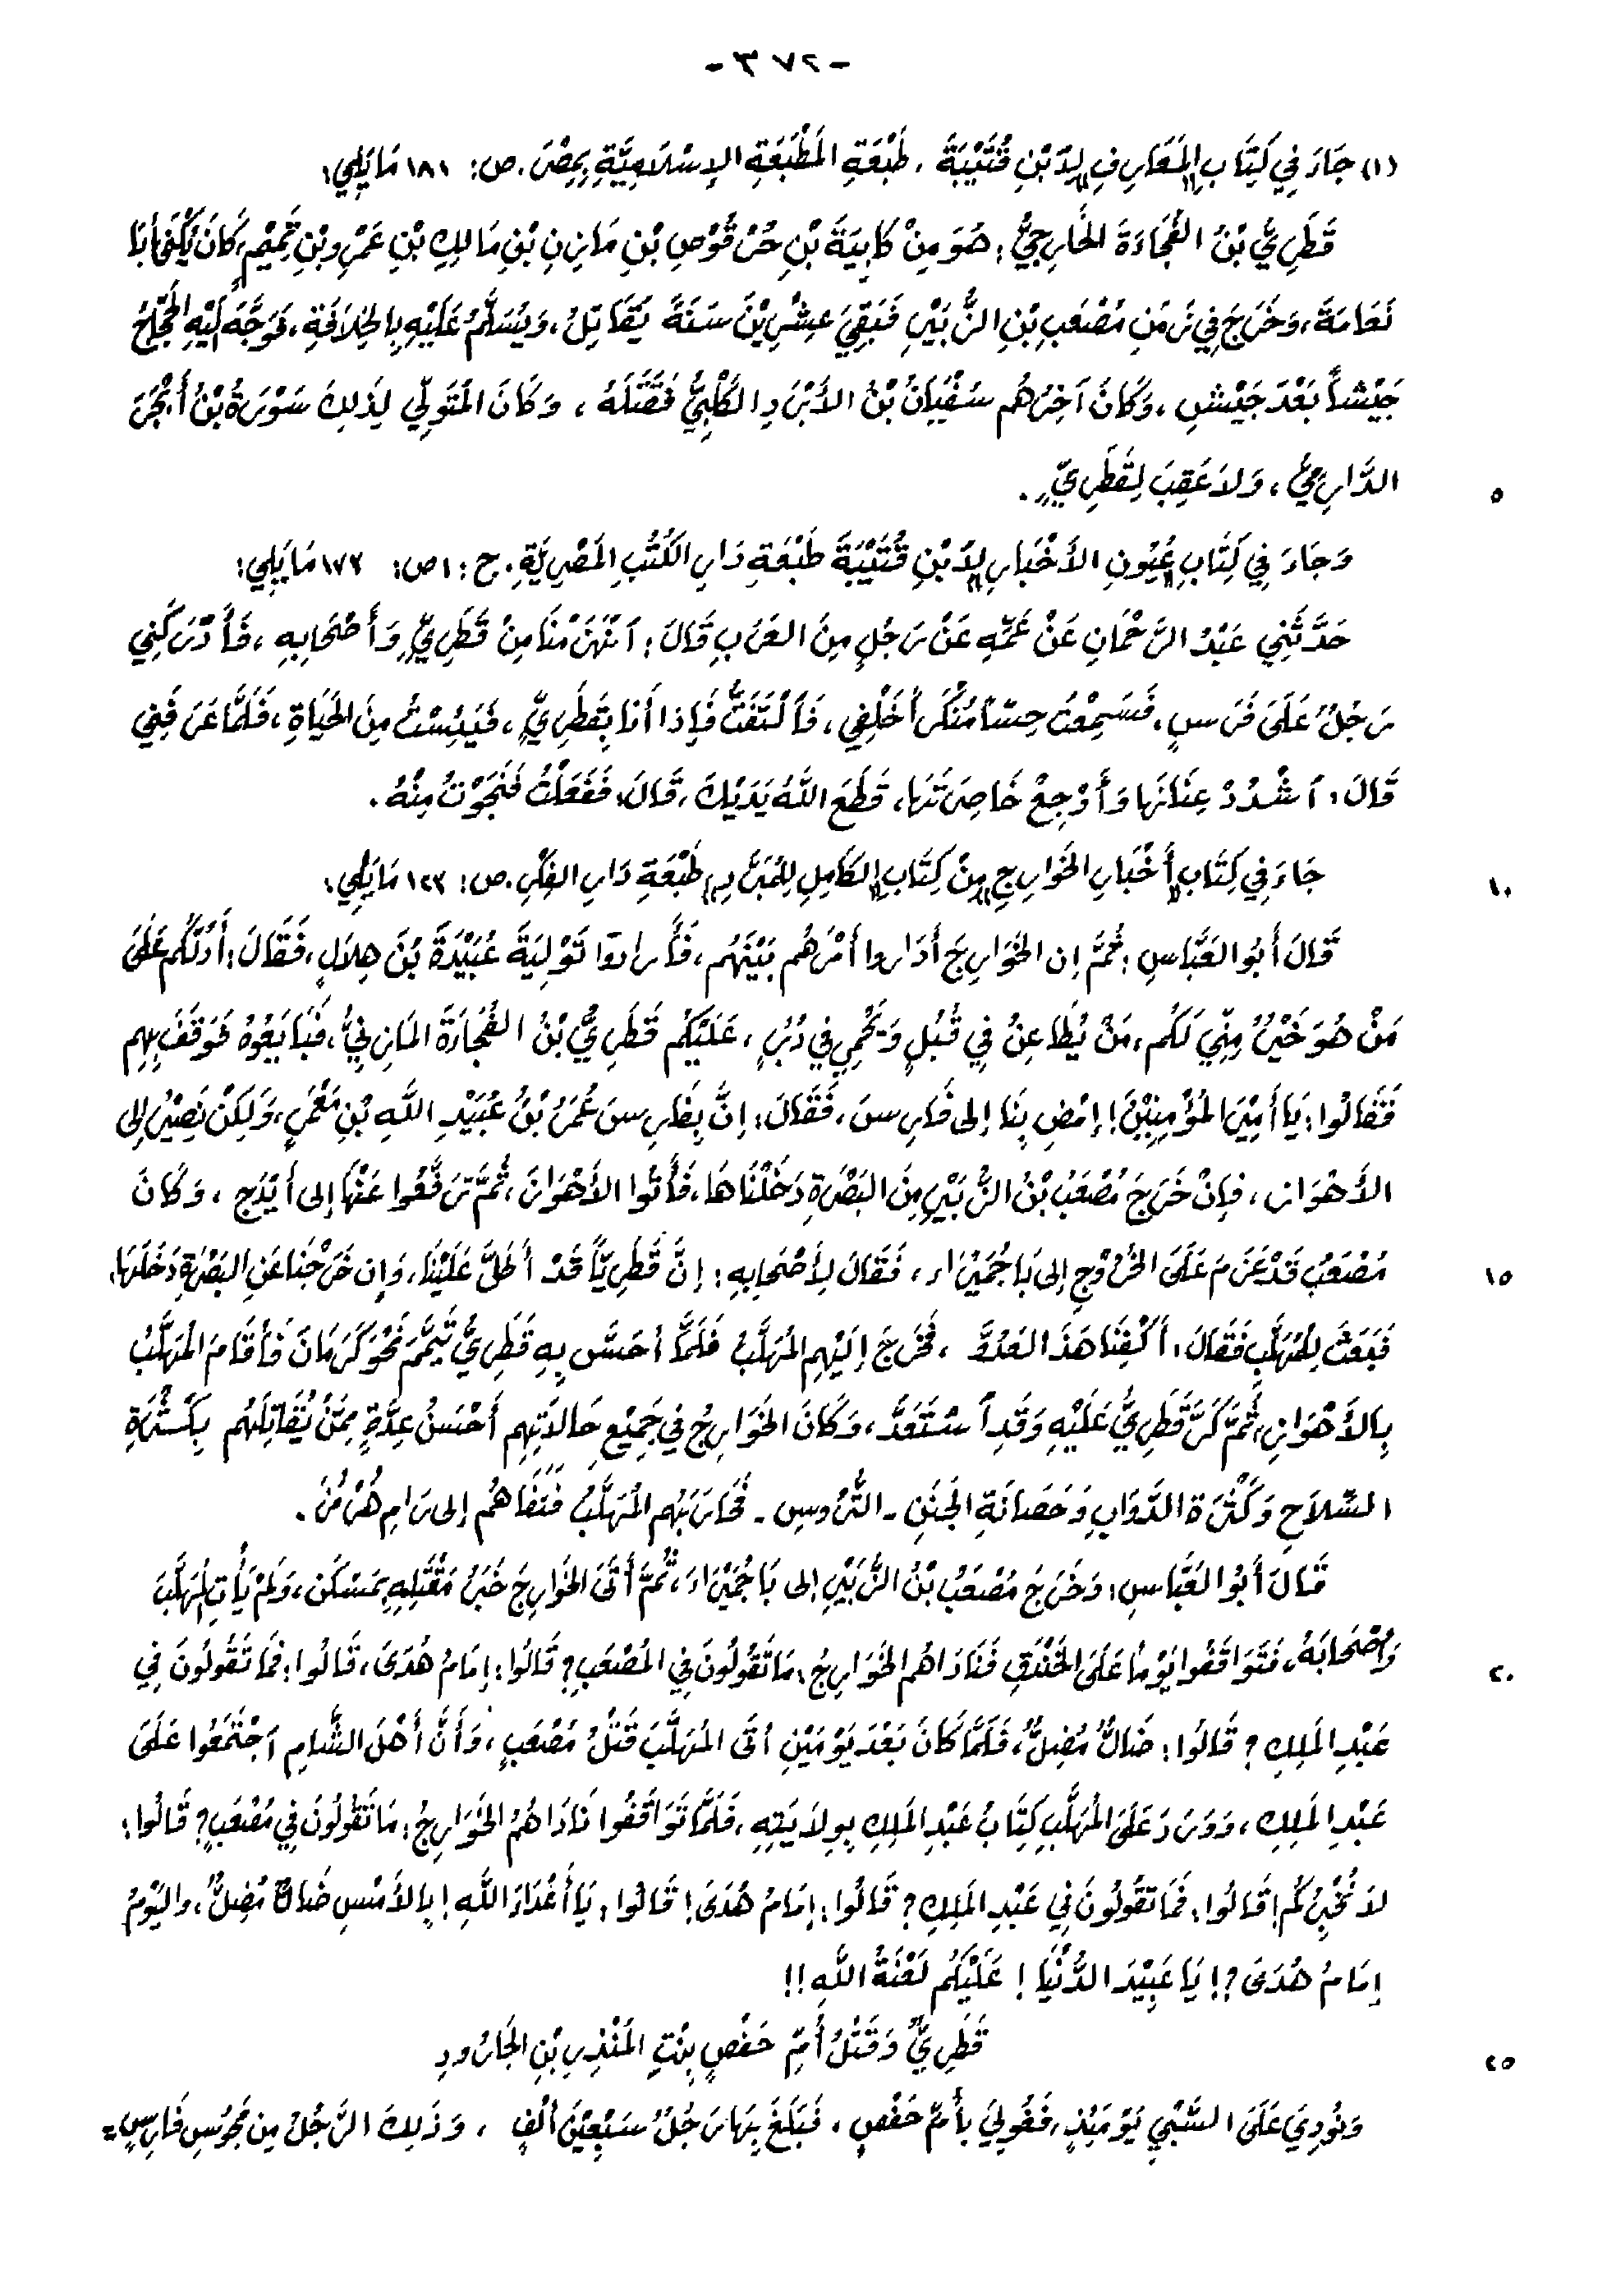 - ٣٧٢ -
(١) جَاءَ فِي كِتَابِ «المَعَارِفِ» لِابْنِ قُتَيْبَةَ ، طَبْعَةِ المَطْبَعَةِ الإِسْلَامِيَّةِ بِمِصْرَ . ص: ١٨١ مَا يَلِي:
قَطَرِيُّ بْنُ الفُجَاءَةِ الخَارِجِيُّ: هُوَ مِنْ كَابِيَةَ بْنِ حُرْقُوْصِ بْنِ مَازِنِ بْنِ مَالِكِ بْنِ عَمْرِو بْنِ تَمِيْمٍ، كَانَ يُكْنَى أَبَا
نَعَامَةَ، وَخَرَجَ فِي زَمَنِ مُصْعَبِ بْنِ الزُّبَيْرِ فَبَقِيَ عِشْرِيْنَ سَنَةً يُقَاتِلُ، وَيُسَلَّمُ عَلَيْهِ بِالخِلَافَةِ، فَوَجَّهَ إِلَيْهِ الحَجَّاجُ
جَيْشاً بَعْدَ جَيْشٍ، وَكَانَ آخِرُهُم سُفْيَانُ بْنُ الأَبْرَدِ الكَلْبِيُّ فَقَتَلَهُ ، وَكَانَ المُتَوَلِّي لِذَلِكَ سَوْرَةُ بْنُ أَبْجَرَ
الدَّارِمِيُّ ، وَلاَ عَقِبَ لِقَطَرِيٍّ .
٥
وَجَاءَ فِي كِتَابِ «عُيُونِ الأَخْبَارِ» لِابْنِ قُتَيْبَةَ طَبْعَةِ دَارِ الكُتُبِ المَصْرِيَّةِ . ج: ١ ص: ١٧٣ مَا يَلِي:
حَدَّثَنِي عَبْدُ الرَّحْمَانِ عَنْ عَمِّهِ عَنْ رَجُلٍ مِنَ العَرَبِ قَالَ: انْهَزَمْنَا مِنْ قَطَرِيٍّ وَأَصْحَابِهِ ، فَأَدْرَكَنِي
رَجُلٌ عَلَى فَرَسٍ ، فَسَمِعْتُ حِسّاً مُنْكَراً خَلْفِي ، فَالْتَفَتُّ فَإِذَا أَنَا بِقَطَرِيٍّ ، فَيَئِسْتُ مِنَ الحَيَاةِ ، فَلَمَّا عَرَفَنِي
قَالَ: اشْدُدْ عِنَانَهَا وَأَوْجِعْ خَاصِرَتَهَا، قَطَعَ اللَّهُ يَدَيْكَ ، قَالَ: فَفَعَلْتُ فَنَجَوْتُ مِنْهُ .
جَاءَ فِي كِتَابِ «أَخْبَارِ الخَوَارِجِ» مِنْ كِتَابِ «الكَامِلِ لِلْمُبَرَّدِ» طَبْعَةِ دَارِ الفِكْرِ . ص: ١٢٣ مَا يَلِي:
١٠
قَالَ أَبُو العَبَّاسِ: ثُمَّ إِنَّ الخَوَارِجَ أَدَارُوا أَمْرَهُم بَيْنَهُم ، فَأَرَادُوا تَوْلِيَةَ عُبَيْدَةَ بْنَ هِلاَلٍ ، فَقَالَ: أَدُلُّكُم عَلَى
مَنْ هُوَ خَيْرٌ مِنِّي لَكُم ، مَنْ يُطَاعِنُ فِي قُبُلٍ وَيَحْمِي فِي دُبُرٍ ، عَلَيْكُم قَطَرِيُّ بْنُ الفُجَاءَةِ المَازِنِيُّ ، فَبَايَعُوهُ فَوَقَفَ بِهِم
فَقَالُوا: يَا أَمِيْرَ المُؤْمِنِيْنَ! إِمْضِ بِنَا إِلَى فَارِسَ ، فَقَالَ: إِنَّ بِفَارِسَ عُمَرَ بْنَ عُبَيْدِ اللَّهِ بْنِ مَعْمَرٍ ، وَلَكِنْ نَصِيْرُ إِلَى
الأَهْوَازِ ، فَإِنْ خَرَجَ مُصْعَبُ بْنُ الزُّبَيْرِ مِنَ البَصْرَةِ دَخَلْنَاهَا ، فَأَتُوا الأَهْوَازَ ، ثُمَّ تَرَفَّعُوا عَنْهَا إِلَى أَيْذَجَ ، وَكَانَ
مُصْعَبُ قَدْ عَزَمَ عَلَى الخُرُوْجِ إِلَى بَاجُمَيْرَاء ، فَقَالَ لِأَصْحَابِهِ: إِنَّ قَطَرِيّاً قَدْ أَطَلَّ عَلَيْنَا، وَإِن خَرَجْنَا عَنِ البَصْرَةِ دَخَلَهَا،
١٥
فَبَعَثَ لِلْمُهَلَّبِ فَقَالَ: اكْفِنَا هَذَا العَدُوَّ ، فَخَرَجَ إِلَيْهِم المُهَلَّبُ فَلَمَّا أَحَسَّ بِهِ قَطَرِيٌّ تَيَمَّمَ نَحْوَ كَرَمَانَ فَأَقَامَ المُهَلَّبُ
بِالأَهْوَازِ، ثُمَّ كَرَّ قَطَرِيٌّ عَلَيْهِ وَقَدِ اسْتَعَدَّ، وَكَانَ الخَوَارِجُ فِي جَمِيْعِ حَالَاتِهِم أَحْسَنُ عِدَّةٍ مِمَّنْ يُقَاتِلُهُم بِكَثْرَةِ
السِّلَاحِ وَكَثْرَةِ الدَّوَابِ وَحَصَانَةِ الجُنَنِ - التُّرُوسِ - فَحَارَبَهُم المُهَلَّبُ فَنَفَاهُم إِلَى رَامِ هُرْمُزَ .
قَالَ أَبُو العَبَّاسِ: وَخَرَجَ مُصْعَبُ بْنُ الزُّبَيْرِ إِلَى بَاجُمَيْرَاءَ، ثُمَّ أَتَى الخَوَارِجَ خَبَرُ مَقْتَلِهِ بِمَسْكَن، وَلَمْ يَأْتِ المُهَلَّبَ
وَأَصْحَابَهُ، فَتَوَاقَفُوا يَوْماً عَلَى الخَنْدَقِ فَنَادَاهُم الخَوَارِجُ: مَا تَقُولُونَ فِي المُصْعَبِ؟ قَالُوا: إِمَامُ هُدَى، قَالُوا: فَمَا تَقُولُونَ فِي
٢٠
عَبْدِ المَلِكِ؟ قَالُوا: ضَالٌّ مُضِلٌّ، فَلَمَّا كَانَ بَعْدَ يَوْمَيْنِ أَتَى المُهَلَّبَ قَتْلُ مُصْعَبٍ ، وَأَنَّ أَهْلَ الشَّامِ اجْتَمَعُوا عَلَى
عَبْدِ المَلِكِ ، وَوَرَدَ عَلَى المُهَلَّبِ كِتَابُ عَبْدِ المَلِكِ بِوِلَايَتِهِ ، فَلَمَّا تَوَاقَفُوا نَادَاهُمُ الخَوَارِجُ: مَا تَقُولُونَ فِي مُصْعَبٍ؟ قَالُوا:
لاَ نُخْبِرُكُم! قَالُوا: فَمَا تَقُولُونَ فِي عَبْدِ المَلِكِ؟ قَالُوا: إِمَامُ هُدَى! قَالُوا: يَا أَعْدَاءَ اللَّهِ! بِالأَمْسِ ضَالٌّ مُضِلٌّ، وَاليَوْمُ
إِمَامُ هُدَى؟! يَا عَبِيْدَ الدُّنْيَا! عَلَيْكُم لَعْنَةُ اللَّهِ!!
قَطَرِيٌّ وَقَتْلُ أُمِّ حَفْصٍ بِنْتِ المُنْذِرِ بْنِ الجَارُودِ
٢٥
وَنُودِيَ عَلَى السَّبْيِ يَوْمَئِذٍ، فَغُولِيَ بِأُمِّ حَفْصٍ ، فَبَلَغَ بِهَا رَجُلٌ سَبْعِيْنَ أَلْفٍ ، وَذَلِكَ الرَّجُلُ مِن مَجُوسِ فَارِسٍ =